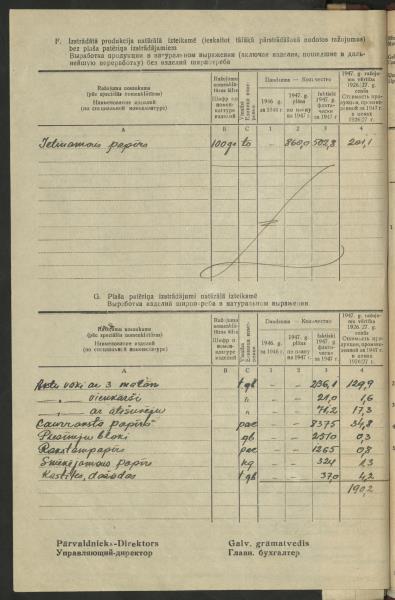 F. Izstrādātā produkcija natūrālā izteiksmē (ieskaitot tālākā pārstrādāšanā nodotos ražojumus)
bez plaša patēriņa izstrādājumiem
Выработка продукции в натуральном выражении (включая изделия, пошедшие в даль-
нейшую переработку) без изделий ширпотреба
Ražojumu nosaukums
(pēc speciālās nomenklatūras)
Наименование изделий
(по специальной номенклатуре)
Ražojumu
nomenklā-
tūras šifrs
Шифр по
номен-
клатуре
изделий
Vienība
Единица изме-
рения
Daudzums — Количество
1946. g.
за 1946 г.
1947. g.
plāns
по плану
на 1947 г.
faktiski
1947. g.
факти-
чески
за 1947 г.
1947. g. ražoju-
mu vērtība
1926./27. g.
cenās
Стоимость про-
дукции, произве-
денной в 1947 г.
в ценах
1926/27 г.
A B C 1 2 3 4
Ietinamais papīrs to – 860,0 502,8 201,1
G. Plaša patēriņa izstrādājumi natūrālā izteiksmē
Выработка изделий ширпотреба в натуральном выражении
Ražojumu nosaukums
(pēc speciālās nomenklatūras)
Наименование изделий
(по специальной номенклатуре)
Ražojumu
nomenklā-
tūras šifrs
Шифр по
номен-
клатуре
изделий
Vienība
Единица изме-
рения
Daudzums — Количество
1946. g.
за 1946 г.
1947. g.
plāns
по плану
на 1947 г.
faktiski
1947. g.
факти-
чески
за 1947 г.
1947. g. ražoju-
mu vērtība
1926./27. g.
cenās
Стоимость про-
дукции, произве-
денной в 1947 г.
в ценах
1926/27 г.
A B C 1 2 3 4
Aktu vāki ar 3 t.gb – – 236,1 129,9
– „ – vienkārši „ – – 21,0 1,6
– „ – ar „ – – 74,2 17,3
Caurraksta papīrs pac – – 8375 34,8
Piezīmju bloki gb – – 2510 0,3
Rakstāmpapīrs pac – – 1265 0,8
Smēķējamais papīrs kg – – 324 1,3
Kastītes, dažādas t.gb – – 37,0 4,2
190,2
Pārvaldnieks-Direktors
Управляющий-директор
Galv. grāmatvedis
Главн. бухгалтер